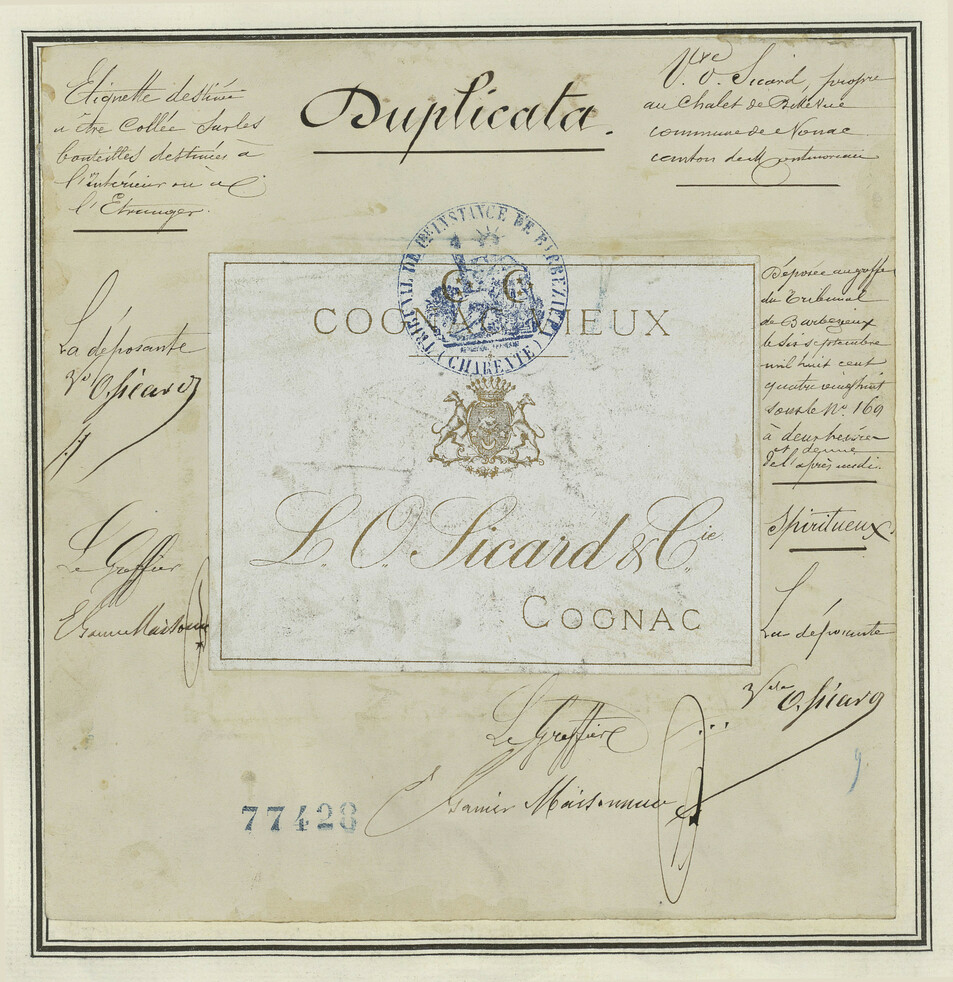 Duplicata.
Etiquette destinée
à être Collée sur les
bouteilles destinées à
l'intérieur ou à
l'Etranger.
Vve O. Sicard, propre
au Chalet de Bellevue
commune de Nonac
canton de Montmoreau
TRIBUNAL DE 1RE INSTANCE DE BARBEZIEUX
(CHARENTE)
C C
COGNAC VIEUX
L. O. Sicard & Cie.
COGNAC
La déposante
Vve O. Sicard
Le Greffier
Déposée au greffe
du tribunal
de Barbezieux
le six septembre
mil huit cent
quatre vingt huit
sous le No. 169
à deux heures
et demie
de l'après midi.
Spiritueux.
La déposante
O. Sicard
Le Greffier
Garnier Maisonneuve
77428